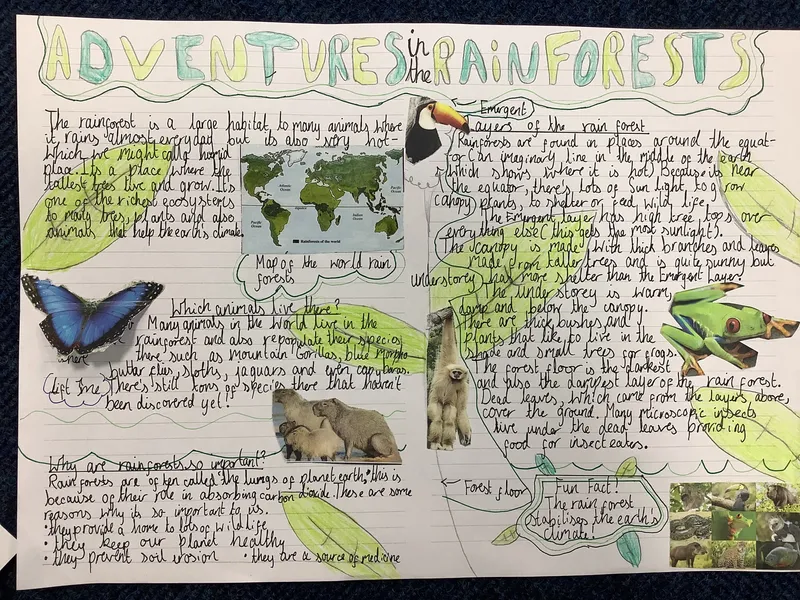 ADVENTURES in the RAINFORESTS
The rainforest is a large habitat to many animals where
it rains almost everyday but its also very hot-
which we might call a humid
place. Its a place where the
tallest trees live and grow. Its
one of the richest ecosystems
to many trees, plants and also
animals that help the earth's climate.
Atlantic Ocean
Pacific Ocean
Indian Ocean
Pacific Ocean
Rainforests of the world
Map of the world rain
forests
Which animals live there?
Many animals in the world live in the
rainforest and also repopulate their species
there such as mountain Gorillas, blue Morpho
butterflies, sloths, jaguars and even capybaras.
There's still tons of species there that haven't
been discovered yet!
where
(Lift me)
Why are rainforests so important?
Rainforests are often called the lungs of planet earth, this is
because of their role in absorbing carbon dioxide. These are some
reasons why its so important to us.
• they provide a home to lots of wild life
• they keep our planet healthy
• they prevent soil erosion • they are a source of medicine
Emergent
Layers of the rain forest
Rainforests are found in places around the equat-
or (an imaginary line in the middle of the earth
which shows where it is hot) Because its near
the equator, there's lots of sun light, to grow
canopy
plants, to shelter or feed wild life.
The Emergent layer has high tree tops over
everything else (this gets the most sunlight).
The canopy is made with thick branches and leaves
made from taller trees and is quite sunny but
understorey
has more shelter than the Emergent Layer.
The understorey is warm,
damp and below the canopy.
There are thick bushes and
plants that like to live in the
shade and small trees for frogs.
The forest floor is the darkest
and also the dampest layer of the rain forest.
Dead leaves, which came from the layers above,
cover the ground. Many microscopic insects
live under the dead leaves providing
food for insect eaters.
Forest floor
Fun Fact!
The rain forest
stabilises the earth's
climate!